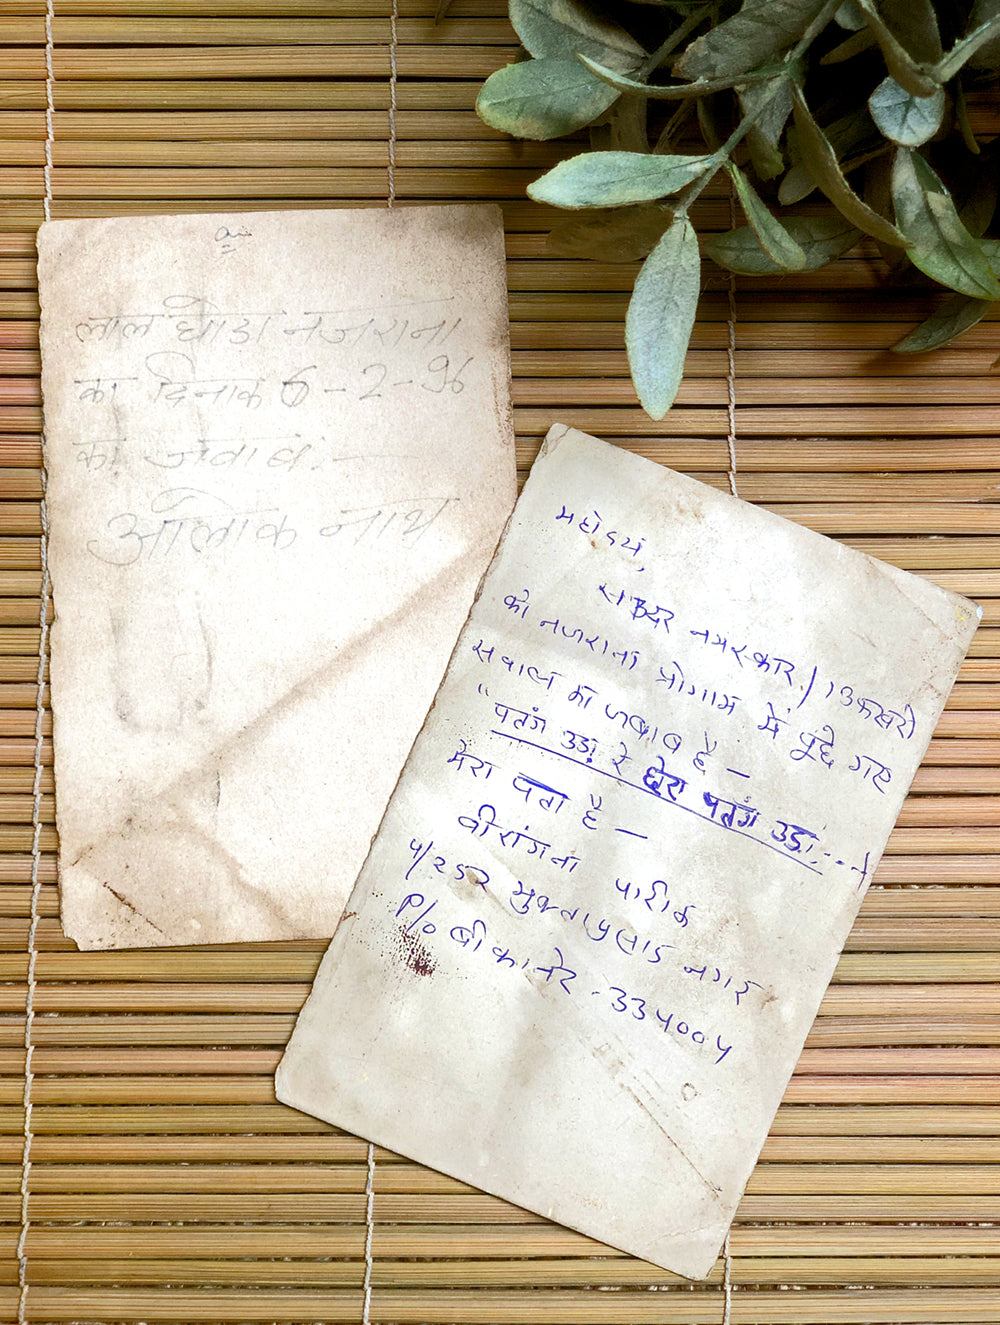 लाल घोडा नजराना
का दिनांक 6-2-96
का जवाब:—
आलोक नाथ
महोदय,
सादर नमस्कार/ 13 फरवरी
को नजराना प्रोग्राम में पूछे गए
सवाल का जवाब है —
"पतंग उडा रे छोरा पतंग उडा...."
मेरा पता है —
वीरांगना पारीक
५/२८२ मुक्ता प्रसाद नगर
P/o बीकानेर - ३३४००४